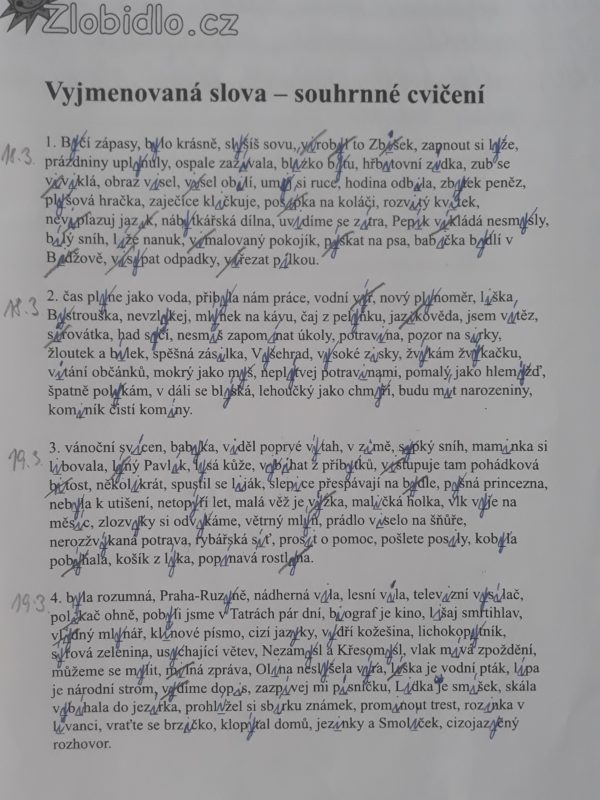 Zlobidlo.cz
Vyjmenovaná slova – souhrnné cvičení
18.3.
1. Býčí zápasy, bylo krásně, slyšíš sovu, vyrobyl to Zbyšek, zapnout si lyže,
prázdniny uplynuly, ospale zazívala, blízko bytu, hřbitovní zídka, zub se
viviklá, obraz visel, vysel obilí, umyj si ruce, hodina odbila, zbytek peněz,
plyšová hračka, zaječice kličkuje, posypka na koláči, rozvitý kvítek,
nevyplazuj jazyk, nábytkářská dílna, uvidíme se zítra, Pepík vykládá nesmysly,
bílý sníh, líže nanuk, vymalovaný pokojík, pískat na psa, babička bydlí v
Bydžově, vysypat odpadky, vyřezat pilkou.
18.3
2. čas plyne jako voda, přibyla nám práce, vodní výr, nový plynoměr, liška
Bystrouška, nevzlykej, mlýnek na kávu, čaj z pelyňku, jazykověda, jsem vítěz,
syrovátka, had syčí, nesmíš zapomínat úkoly, potravina, pozor na sirky,
žloutek a bílek, spěšná zásilka, Vyšehrad, vysoké zisky, žvýkám žvýkačku,
vítání občánků, mokrý jako myš, neplýtvej potravinami, pomalý jako hlemýžď,
špatně polykám, v dáli se blýská, lehoučký jako chmýří, budu mít narozeniny,
kominík čistí komíny.
19.3.
3. vánoční svícen, babyka, viděl poprvé výtah, v zimě, sypký sníh, maminka si
libovala, líný Pavlík, lysá kůže, vybíhat z příbytků, vystupuje tam pohádková
bytost, několikrát, spustil se liják, slepice přespávají na bydle, pyšná princezna,
nebyla k utišení, netopýři let, malá věž je výžka, maličká holka, vlk vyje na
měsíc, zlozvyky si odvykáme, větrný mlýn, prádlo viselo na šňůře,
nerozžvýkaná potrava, rybářská síť, prosit o pomoc, pošlete posily, kobyla
pobíhala, košík z lýka, popínavá rostlina.
19.3
4. byla rozumná, Praha-Ruzyně, nádherná vila, lesní víla, televizní vysílač,
polykač ohně, pobyli jsme v Tatrách pár dní, biograf je kino, lišaj smrtihlav,
vlídný mlynář, klínové písmo, cizí jazyky, vydří kožešina, lichokopytník,
syrová zelenina, usychající větev, Nezamysl a Křesomysl, vlak mívá zpoždění,
můžeme se mýlit, mylná zpráva, Olina neslyšela výra, lyska je vodní pták, lípa
je národní strom, vydíme dopis, zazpívej mi písničku, Lidka je smíšek, skála
vybíhala do jezírka, prohlížel si sbírku známek, prominout trest, rozinka v
lívanci, vraťte se brzičko, klopýtal domů, jezinky a Smolíček, cizojazyčný
rozhovor.